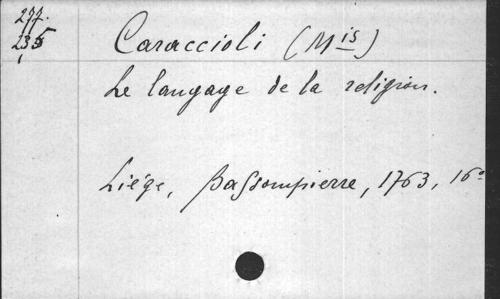 277.
235
Caraccioli (Mis)
Le langage de la religion.
Liége, Bassompierre, 1763, 16°